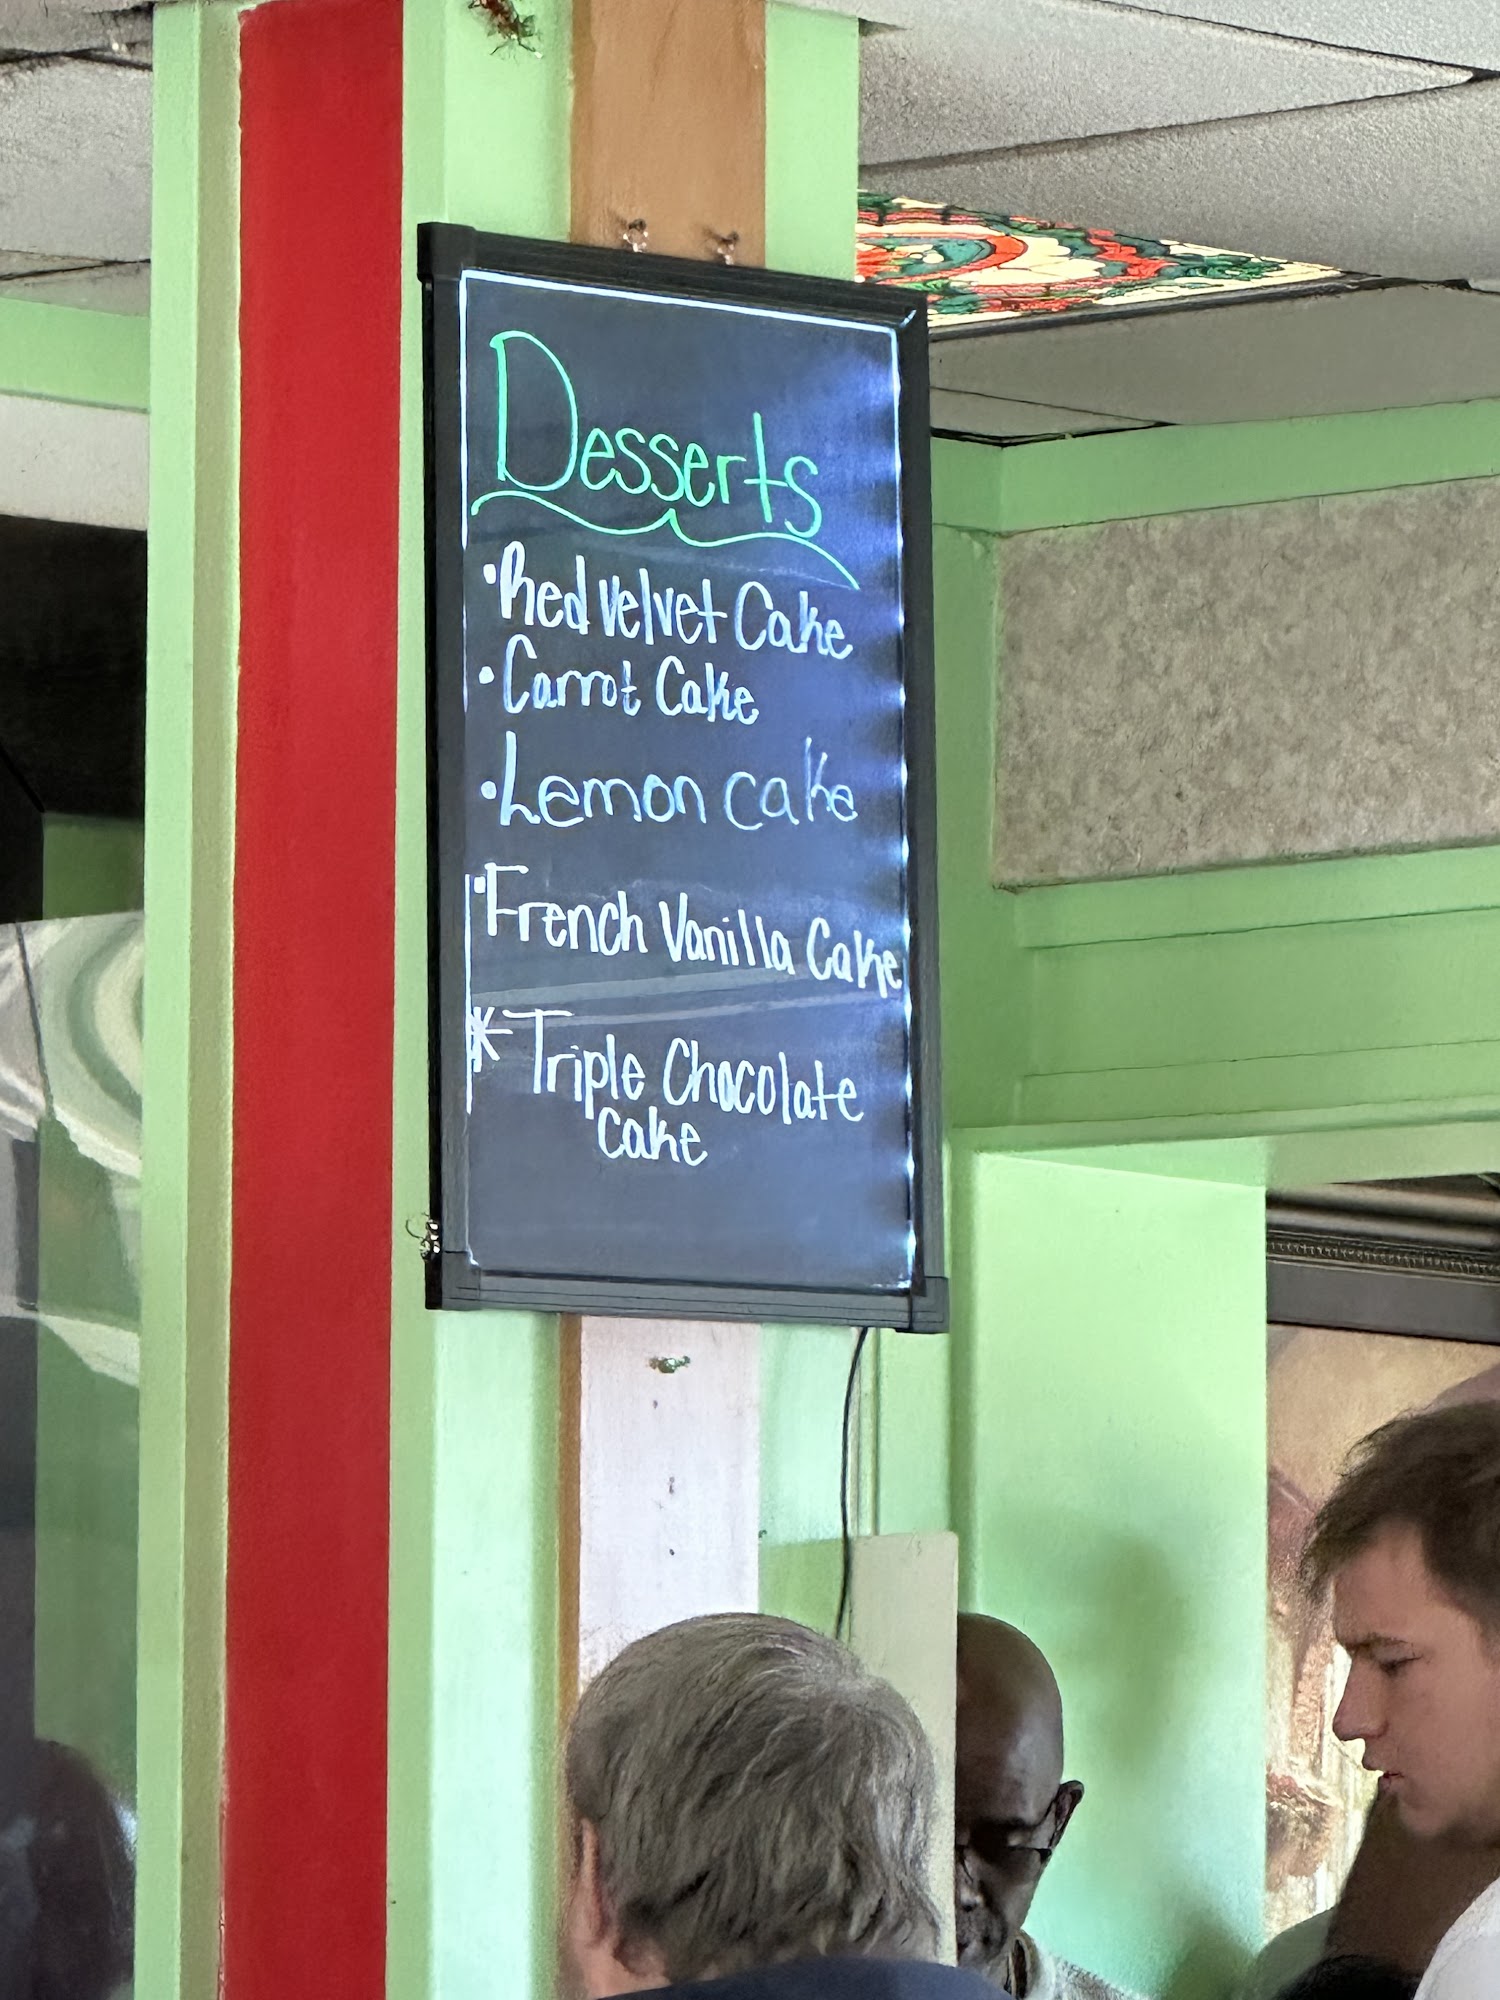 Desserts
• Red Velvet Cake
• Carrot Cake
• Lemon cake
• French Vanilla Cake
* Triple Chocolate
cake